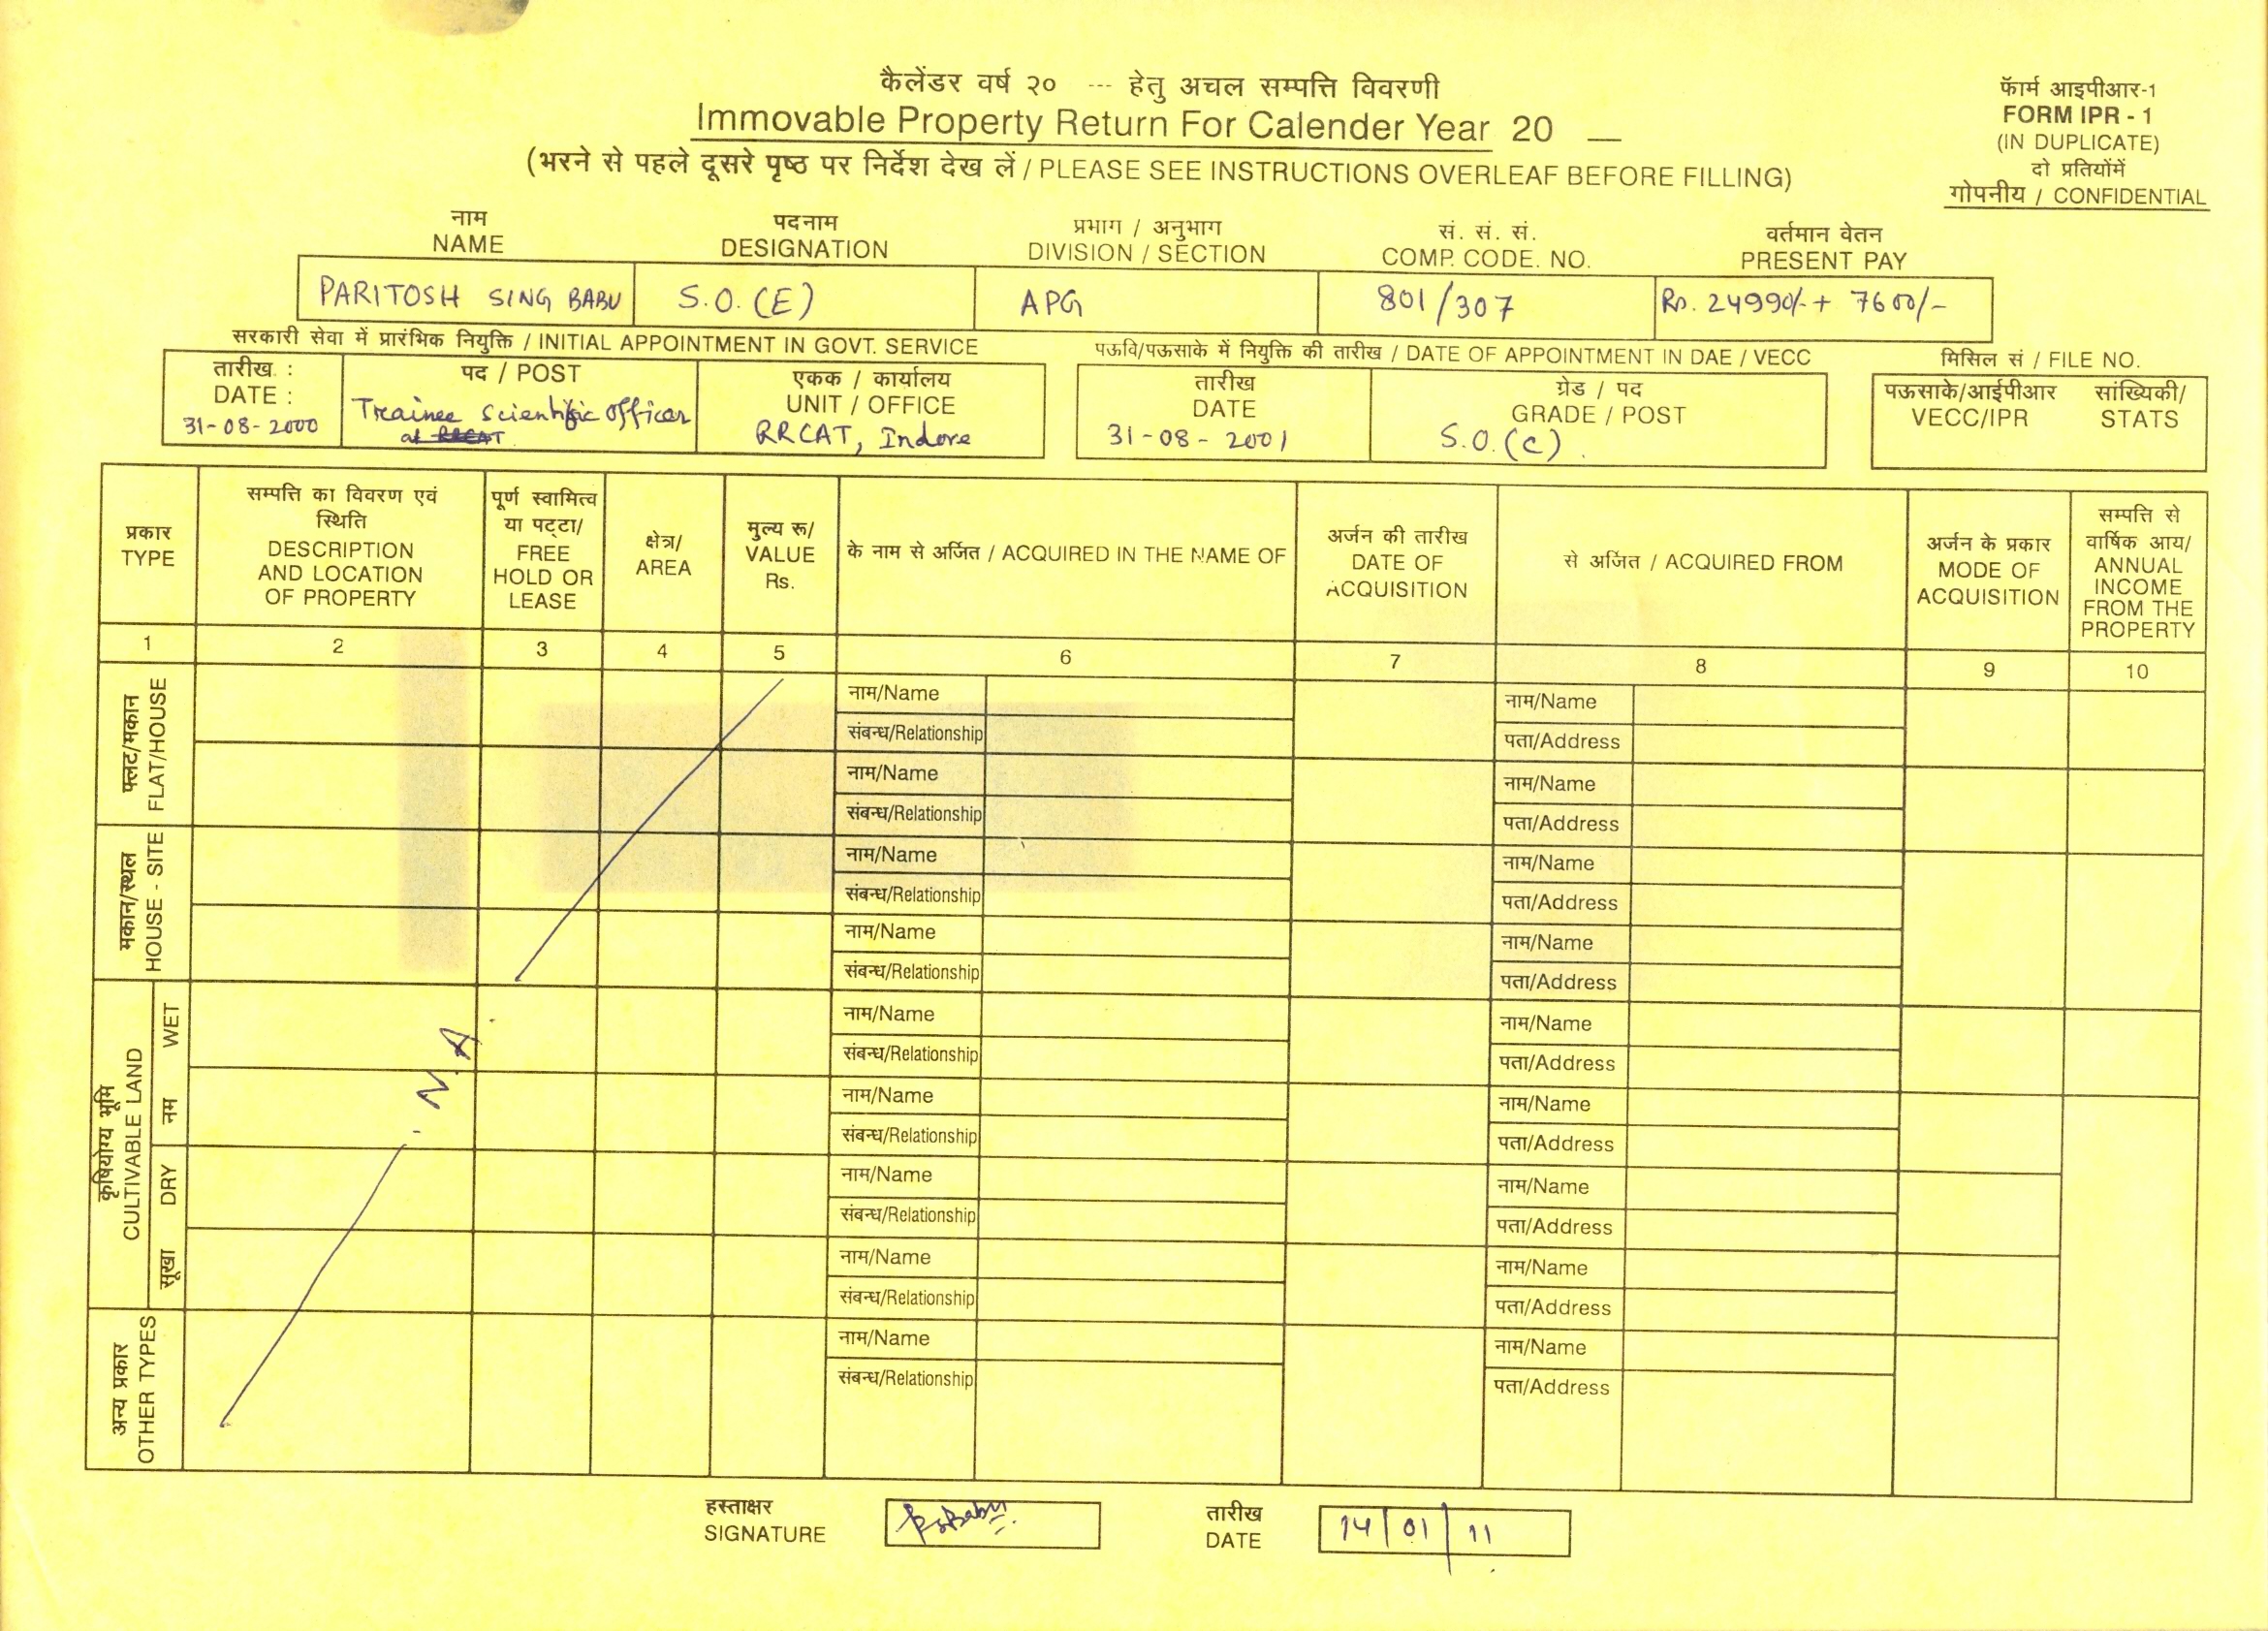 कैलेंडर वर्ष २० --- हेतु अचल सम्पत्ति विवरणी
Immovable Property Return For Calender Year 20 __
(भरने से पहले दूसरे पृष्ठ पर निर्देश देख लें / PLEASE SEE INSTRUCTIONS OVERLEAF BEFORE FILLING)
फॅार्म आइपीआर-1
FORM IPR - 1
(IN DUPLICATE)
दो प्रतियोंमें
गोपनीय / CONFIDENTIAL
नाम पदनाम प्रभाग / अनुभाग सं. सं. सं. वर्तमान वेतन
NAME DESIGNATION DIVISION / SECTION COMP. CODE. NO. PRESENT PAY
PARITOSH SING BABU S.O.(E) APG 801/307 Rs. 24990/- + 7600/-
सरकारी सेवा में प्रारंभिक नियुक्ति / INITIAL APPOINTMENT IN GOVT. SERVICE
तारीख :
DATE :
31-08-2000
पद / POST
Trainee Scientific Officer
at RRCAT
एकक / कार्यालय
UNIT / OFFICE
RRCAT, Indore
पऊवि/पऊसाके में नियुक्ति की तारीख / DATE OF APPOINTMENT IN DAE / VECC
तारीख
DATE
31-08-2001
ग्रेड / पद
GRADE / POST
S.O.(C).
मिसिल सं / FILE NO.
पऊसाके/आईपीआर सांख्यिकी/
VECC/IPR STATS
प्रकार
TYPE
सम्पत्ति का विवरण एवं
स्थिति
DESCRIPTION
AND LOCATION
OF PROPERTY
पूर्ण स्वामित्व
या पट्टा/
FREE
HOLD OR
LEASE
क्षेत्र/
AREA
मुल्य रू/
VALUE
Rs.
के नाम से अर्जित / ACQUIRED IN THE NAME OF
अर्जन की तारीख
DATE OF
ACQUISITION
से अर्जित / ACQUIRED FROM
अर्जन के प्रकार
MODE OF
ACQUISITION
सम्पत्ति से
वार्षिक आय/
ANNUAL
INCOME
FROM THE
PROPERTY
1 2 3 4 5 6 7 8 9 10
फ्लट/मकान
FLAT/HOUSE
नाम/Name नाम/Name
संबन्ध/Relationship पता/Address
नाम/Name नाम/Name
संबन्ध/Relationship पता/Address
मकान/स्थल
HOUSE - SITE
नाम/Name नाम/Name
संबन्ध/Relationship पता/Address
नाम/Name नाम/Name
संबन्ध/Relationship पता/Address
कृषियोग्य भूमि
CULTIVABLE LAND
नम WET
नाम/Name नाम/Name
संबन्ध/Relationship पता/Address
नाम/Name नाम/Name
संबन्ध/Relationship पता/Address
. N. A.
सूखा DRY
नाम/Name नाम/Name
संबन्ध/Relationship पता/Address
नाम/Name नाम/Name
संबन्ध/Relationship पता/Address
अन्य प्रकार
OTHER TYPES
नाम/Name नाम/Name
संबन्ध/Relationship पता/Address
हस्ताक्षर
SIGNATURE
PSBabu
तारीख
DATE
14|01|11